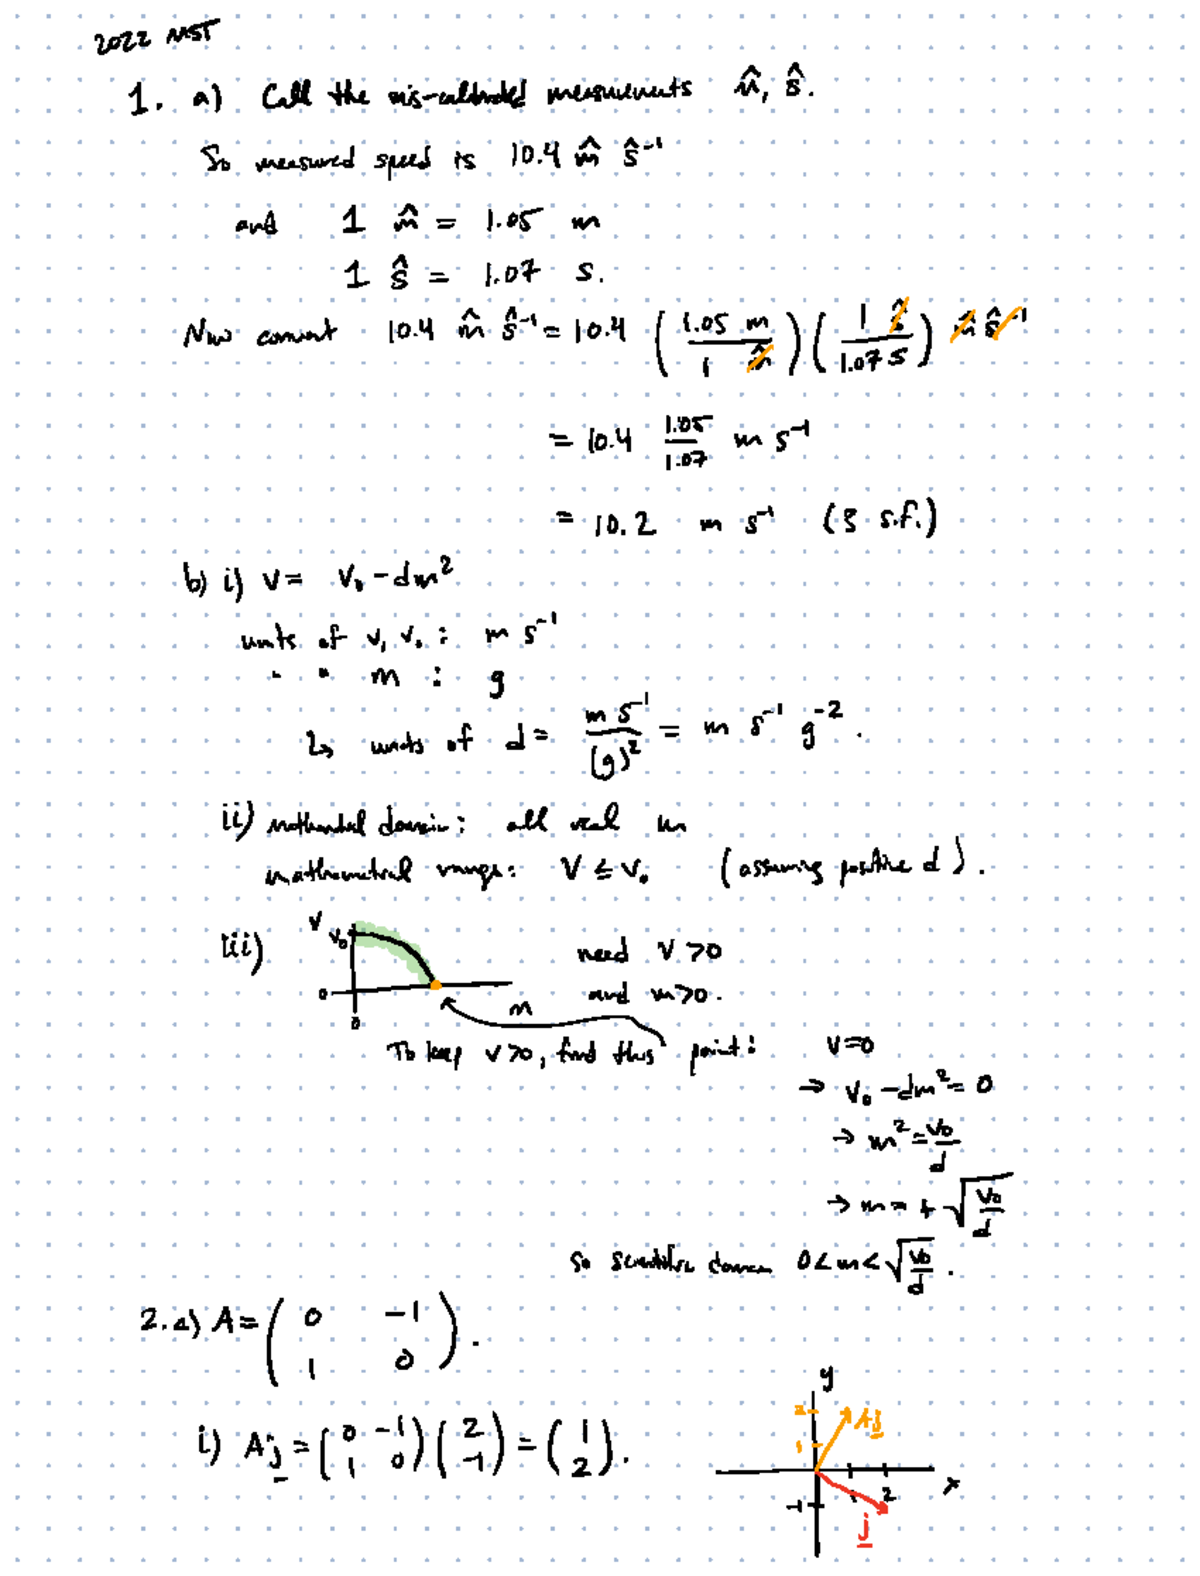 2022 MST
1. a) Call the mis-calibrated measurements m̂, ŝ.
So measured speed is 10.4 m̂ ŝ⁻¹
and 1 m̂ = 1.05 m
1 ŝ = 1.07 s.
Now convert 10.4 m̂ ŝ⁻¹ = 10.4 (1.05 m / 1 m̂) (1 ŝ / 1.07 s) m̂ ŝ⁻¹
= 10.4 1.05/1.07 m s⁻¹
= 10.2 m s⁻¹ (3 s.f.)
b) i) v = v₀ - dm²
units of v, v₀ : m s⁻¹
" " m : g
↳ units of d = m s⁻¹/(g)² = m s⁻¹ g⁻².
ii) mathematical domain: all real m
mathematical range: v ≤ v₀ (assuming positive d).
iii) v v₀ 0 0 m
need v > 0
and m > 0.
To keep v > 0, find this point: v = 0
→ v₀ - dm² = 0
→ m² = v₀/d
→ m = + √(v₀/d)
So scientific domain 0 < m < √(v₀/d).
2. a) A = (0 -1
1 0).
i) Aj = (0 -1; 1 0)(2; -1) = (1; 2).
y
2 Aj
1
1 2 x
-1
j